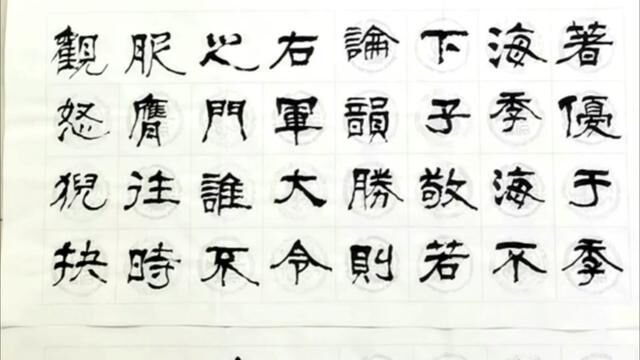 著優于季
海季海不
下子敬若
論韻勝則
右軍大令
之門誰不
服膺往時
觀怒猊抉